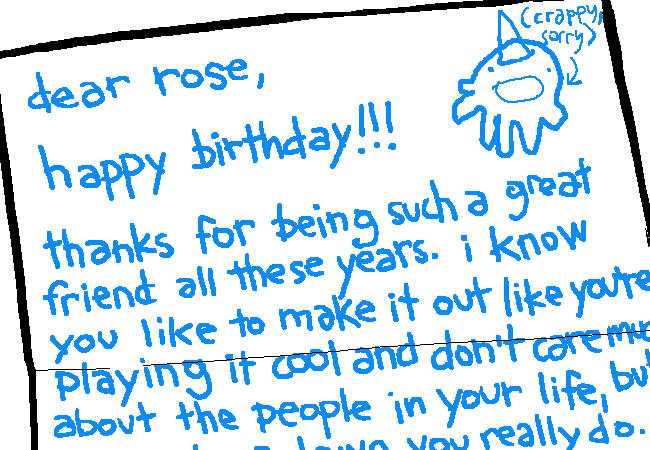 (crappy,
sorry)
dear rose,
happy birthday!!!
thanks for being such a great
friend all these years. i know
you like to make it out like you're
playing it cool and don't care
about the people in your life,
down you really do.